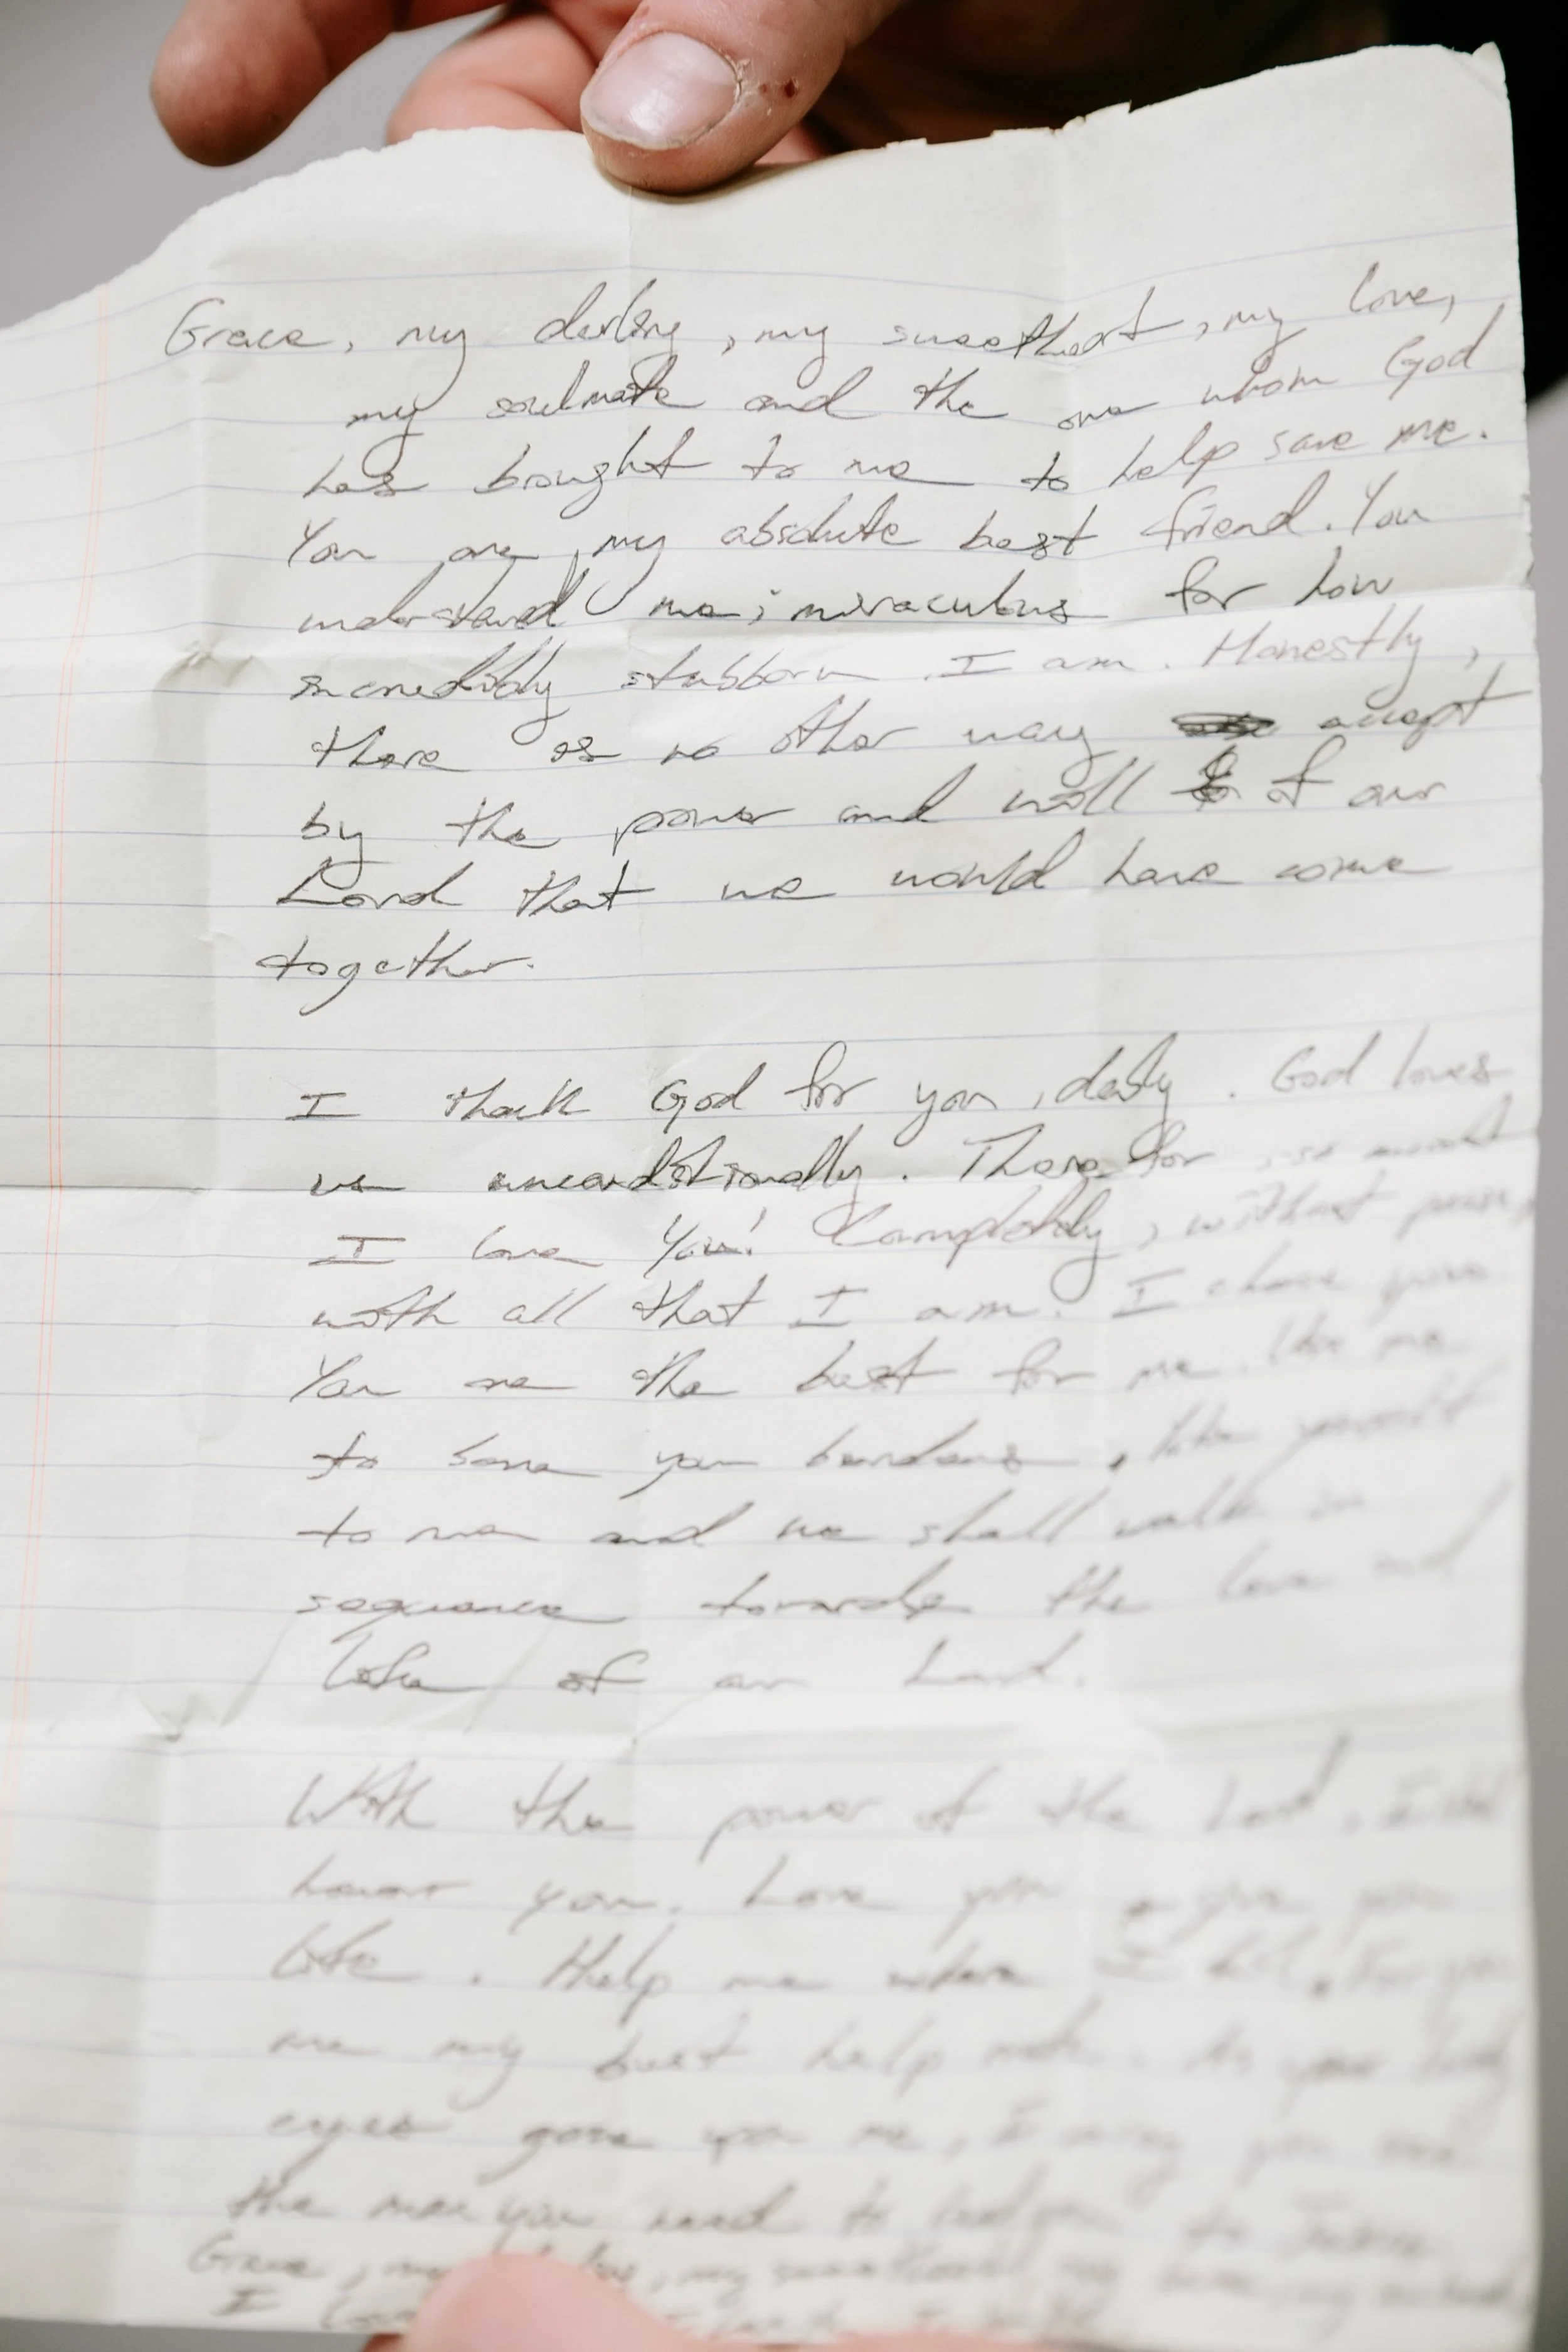 Grace, my darling, my sweetheart, my love,
my soulmate and the one whom God
has brought to me to help save me.
You are my absolute best friend. You
understand me; miraculous for how
incredibly stubborn I am. Honestly,
there is no other way accept
by the power and will of our
Lord that we would have come
together.
I thank God for you, daily. God loves
us unconditionally. Therefor, so must
I love You! Completely, without pause,
with all that I am. I chose you.
You are the best for me. Use me
to bare your burdens, take yourself
to me and we shall walk in
sequence towards the love and
life of our Lord.
With the power of the Lord, I will
honor you. Love you give you
life. Help me where I fall, For you
are my best help mate. As your
eyes gaze upon me, I may you
the man you need to
Grace, my my sweetheart,
I